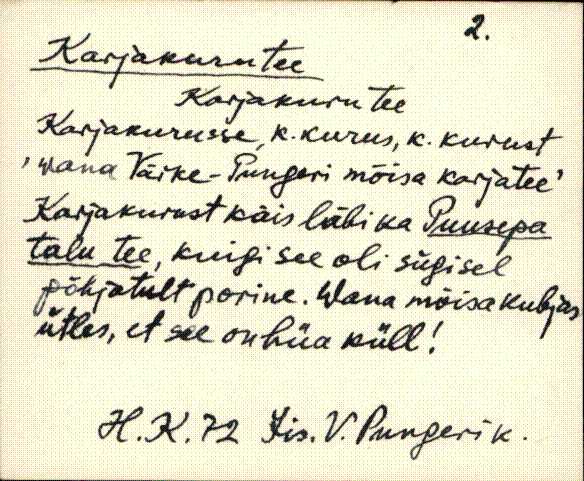 2.
Karjakurutee
Karjakuru tee
Karjakurusse, k. kurus, k. kurust
'wana Väike-Pungeri mõisa karjatee'
Karjakurust käis läbi ka Puusepa
talu tee, kuigi see oli sügisel
põhjatult porine. Wana mõisakubjas
ütles, et see on hüa küll!
H. K. 72 Jis. V. Pungerik.